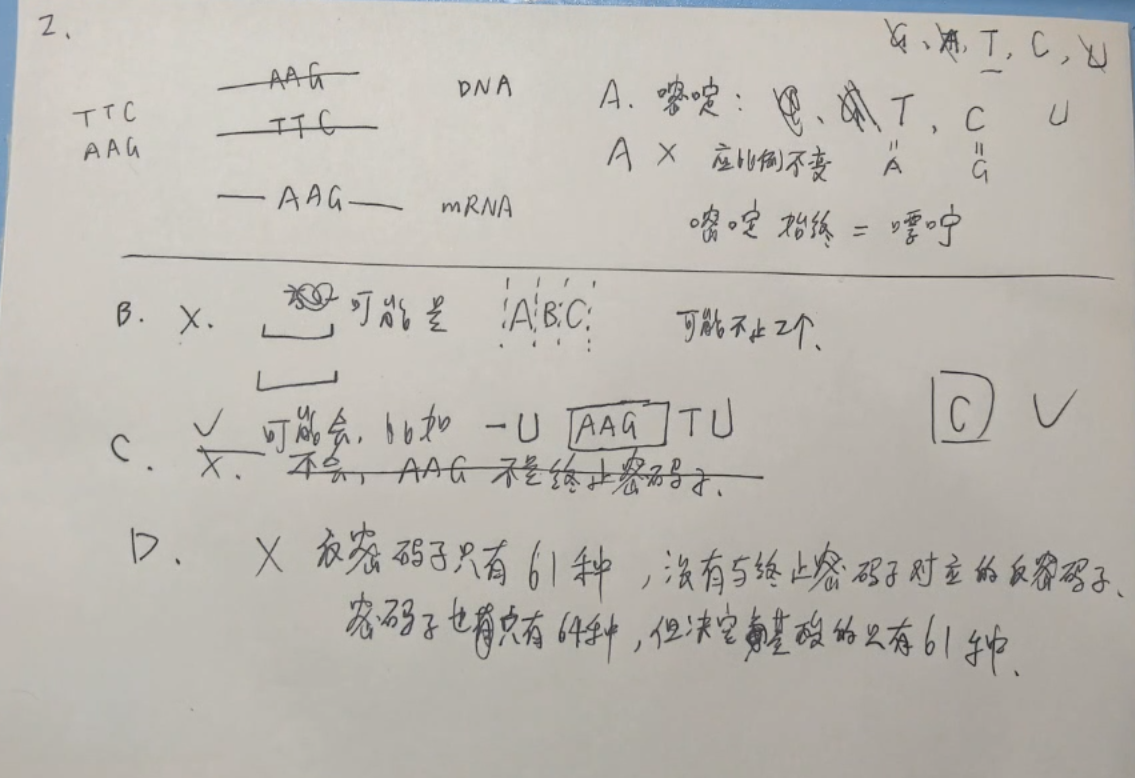 2.
AAG DNA
TTC
TTC
AAG
AAG mRNA
G、A、T、C、U
A. 嘧啶: T、C U
A × 应比例不变 A G
嘧啶始终 = 嘌呤
B. ×. 可能是 A B C 可能不止2个、
C. √ 可能会, 比如 -U AAG TU
×. 不会, AAG 不是终止密码子、
C √
D. × 反密码子只有61种, 没有与终止密码子对应的反密码子、
密码子也只有64种, 但决定氨基酸的只有61种、